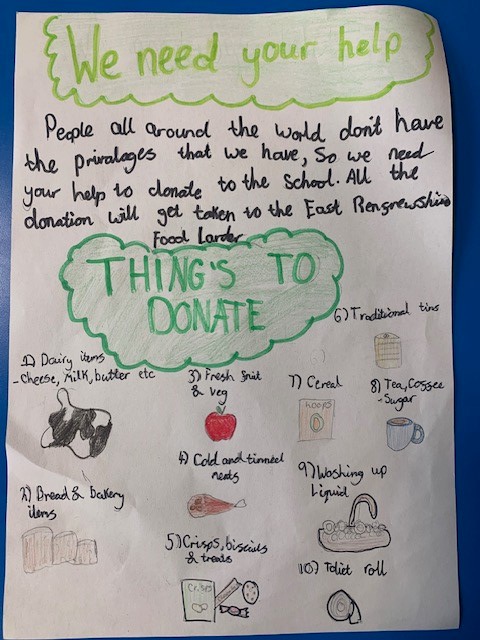 We need your help
People all around the world don't have
the privalages that we have, So we need
your help to donate to the School. All the
donation will get taken to the East Rengrewshire
Food Larder
THING'S TO
DONATE
1) Dairy items
- Cheese, Milk, butter etc
2) Bread & bakery
items
3) Fresh fruit
& veg
4) Cold and tinned
meats
5) Crisps, biscuits
& treats
Crisps
6) Traditional tins
7) Cereal
HOOPS
8) Tea, Coffee
- Sugar
9) Washing up
Liquid
10) Toliet roll